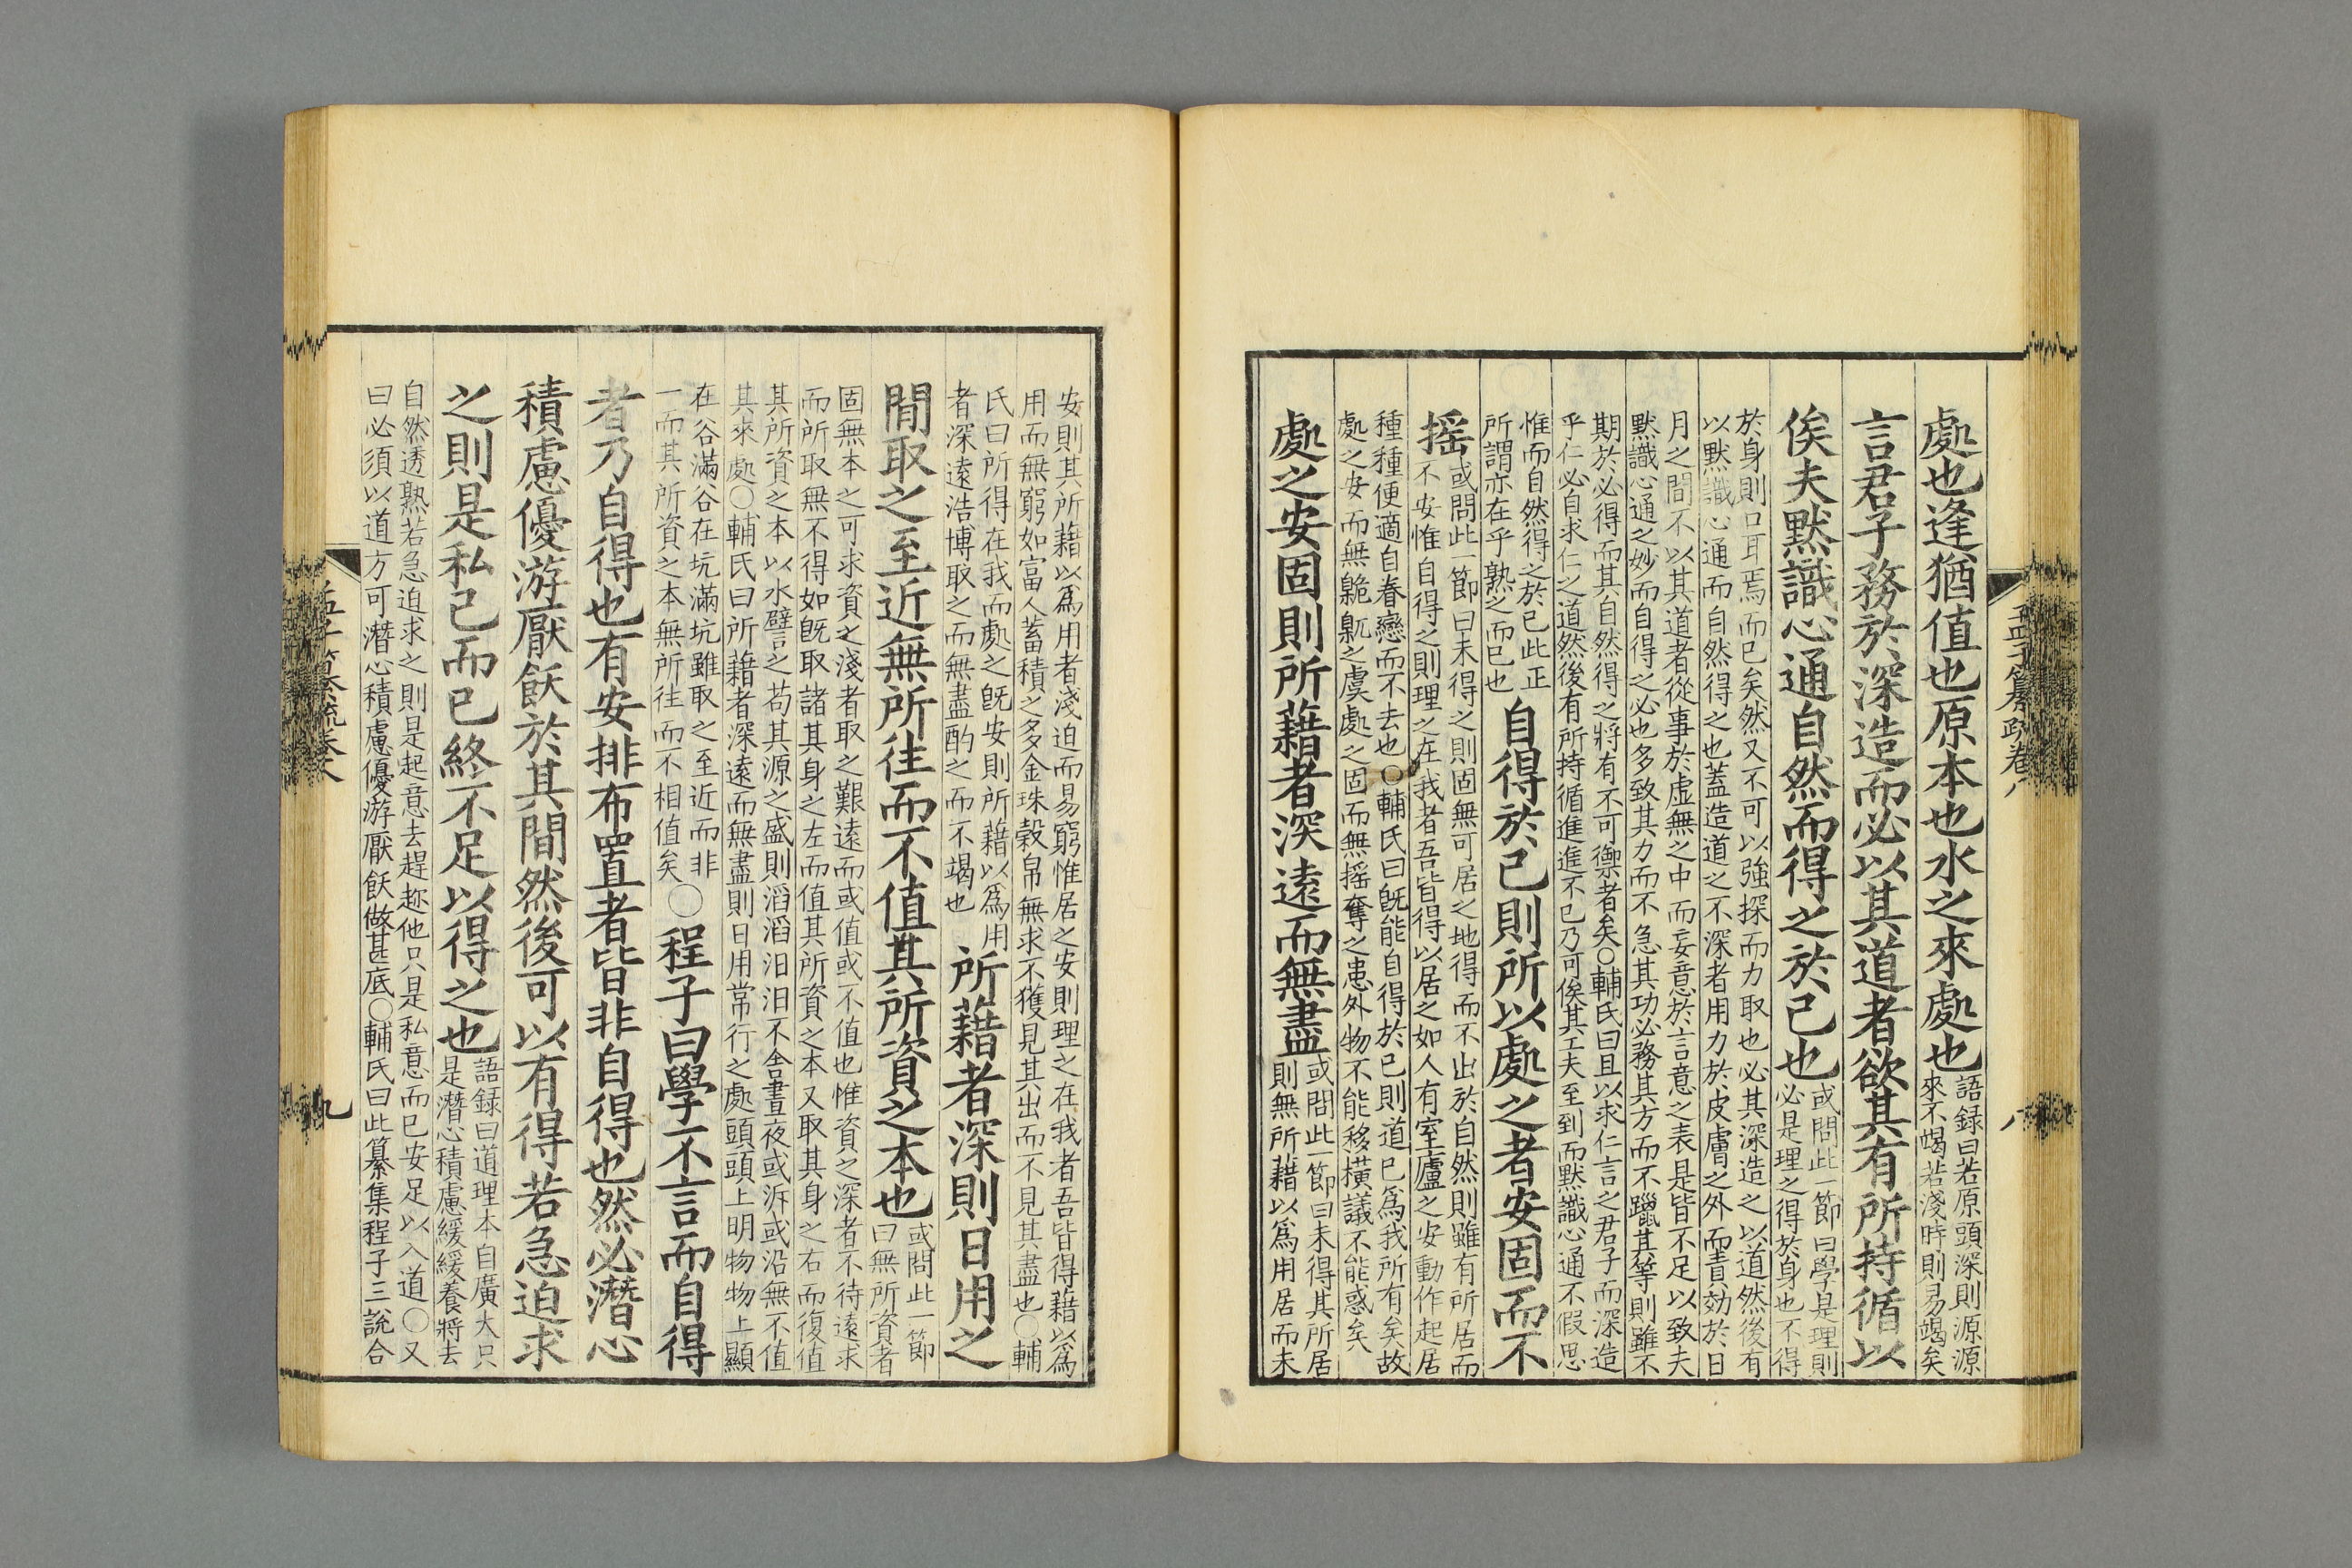 處也逢猶值也原本也水之來處也語録曰若原頭深則源源
來不竭若淺時則易竭矣
言君子務於深造而必以其道者欲其有所持循以
俟夫黙識心通自然而得之於己也或問此一節曰學是理則
必是理之得於身也不得
於身則口耳焉而已矣然又不可以強探而力取也必其深造之以道然後有
以黙識心通而自然得之也蓋造道之不深者用力於皮膚之外而責効於日
月之間不以其道者從事於虚無之中而妄意於言意之表是皆不足以致夫
黙識心通之妙而自得之必也多致其力而不急其功必務其方而不躐其等則雖不
期於必得而其自然得之將有不可禦者矣○輔氏曰且以求仁言之君子而深造
乎仁必自求仁之道然後有所持循進進不已乃可俟其工夫至到而黙識心通不假思
惟而自然得之於已此正
所謂亦在乎熟之而已也
自得於己則所以處之者安固而不
揺或問此一節曰未得之則固無可居之地得而不出於自然則雖有所居而
不安惟自得之則理之在我者吾皆得以居之如人有室廬之安動作起居
種種便適自眷戀而不去也○輔氏曰旣能自得於已則道已爲我所有矣故
處之安而無臲卼之虞處之固而無揺奪之患外物不能移横議不能惑矣
處之安固則所藉者深遠而無盡或問此一節曰未得其所居
則無所藉以爲用居而未
孟子纂疏卷八
八
安則其所藉以爲用者淺迫而易窮惟居之安則理之在我者吾皆得藉以爲
用而無窮如富人蓄積之多金珠穀帛無求不獲見其出而不見其盡也○輔
氏曰所得在我而處之旣安則所藉以爲用
者深遠浩博取之而無盡酌之而不竭也
所藉者深則日用之
閒取之至近無所往而不值其所資之本也或問此一節
曰無所資者
固無本之可求資之淺者取之艱遠而或值或不值也惟資之深者不待遠求
而所取無不得如旣取諸其身之左而值其所資之本又取其身之右而復值
其所資之本以水譬言之苟其源之盛則滔滔汨汨不舎晝夜或泝或沿無不值
其來處○輔氏曰所藉者深遠而無盡則日用常行之處頭頭上明物物上顯
在谷滿谷在坑滿坑雖取之至近而非
一而其所資之本無所往而不相值矣
○程子曰學不言而自得
者乃自得也有安排布置者皆非自得也然必潛心
積慮優游厭飫於其間然後可以有得若急迫求
之則是私己而已終不足以得之也語録曰道理本自廣大只
是潛心積慮緩緩養將去
自然透熟若急迫求之則是起意去趕趂他只是私意而已安足以入道○又
曰必須以道方可潛心積慮優游厭飫做甚底○輔氏曰此纂集程子三説合
九